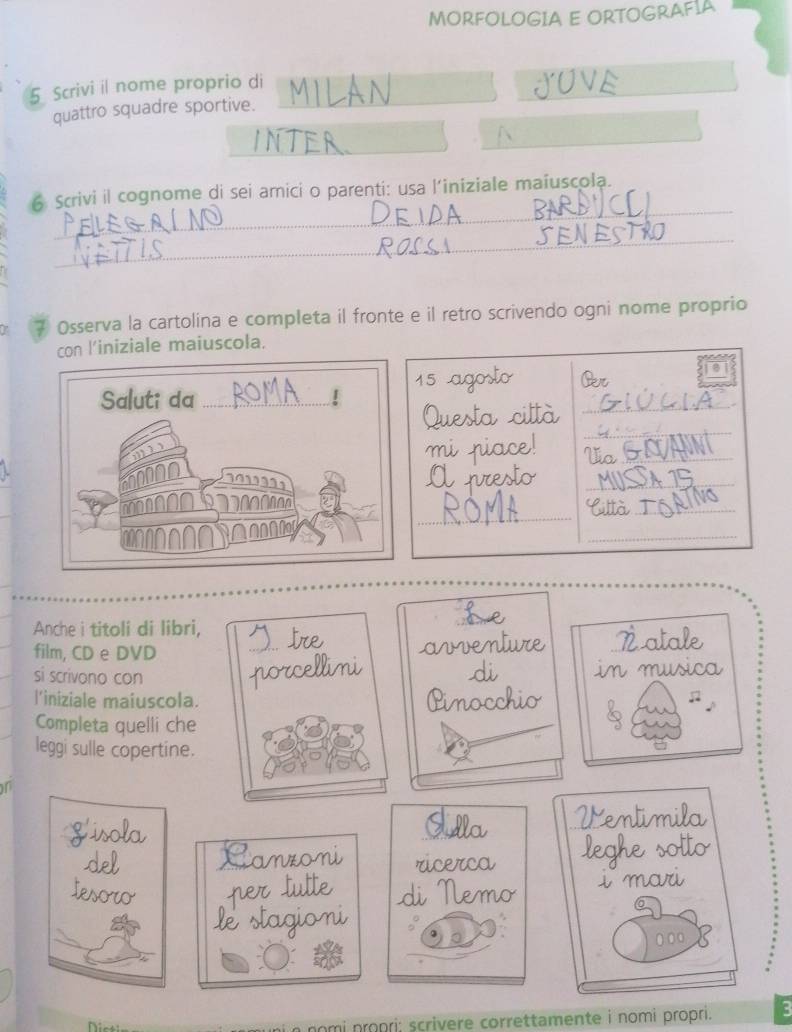 MORFOLOGIA E ORTOGRAFIA
5 Scrivi il nome proprio di
quattro squadre sportive.
MILAN
JUVE
INTER
6 Scrivi il cognome di sei amici o parenti: usa l'iniziale maiuscola.
PELLEGRINO DEIDA BARBUCCI
NETTIS ROSSI SENESTRO
7 Osserva la cartolina e completa il fronte e il retro scrivendo ogni nome proprio
con l'iniziale maiuscola.
Saluti da ROMA !
15 agosto
Questa città
mi piace!
A presto
ROMA
Per
GIULIA
Via GIOVANNI
MUSSA 15
Città TORINO
Anche i titoli di libri,
film, CD e DVD
si scrivono con
l'iniziale maiuscola.
Completa quelli che
leggi sulle copertine.
I tre
porcellini
Le
avventure
di
Pinocchio
Natale
in musica
L'isola
del
tesoro
Canzoni
per tutte
le stagioni
Alla
ricerca
di Nemo
Ventimila
leghe sotto
i mari
nomi propri; scrivere correttamente i nomi propri.
3